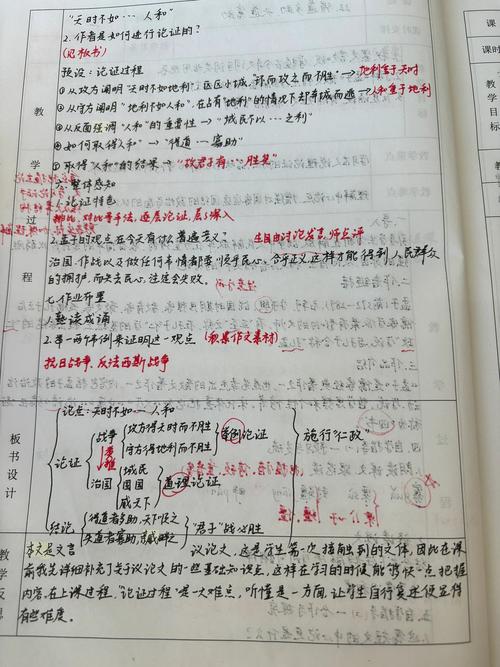 "天时不如…人和"
2.作者是如何进行论证的?
(见板书)
预设:论证过程
①从攻方阐明"天时不如地利",区区小城,环而攻之而不胜"→地利重于天时
②从守方阐明"地利不如人和",在占有"地利"的情况下却弃城而逃→人和重于地利
③从反面强调"人和"的重要性→"域民不以…之利"
④如何取得"人和"→"得道…寡助"
⑤取得人和"的结果→"故君子有…胜矣"
整体感知
1.论证特色
排比、对比等手法,逐层论证,层层深入
2.孟子的观点在今天有什么普遍意义?
生自由讨论发言,师点评
治国、作战以及做任何事情都要顺乎民心、合乎正义,这样才能得到人民群众
的拥护,而失去民心,往往会失败。
七.作业布置
1.熟读成诵
2.举一两个事例来证明这一观点(积累作文素材)
抗日战争、反法西斯战争
教
学
过
程
板书设计
论点:天时不如…人和
论证
战争
攻方得天时而不胜
守方得地利而不胜
举例论证
治国
域民
固国
威天下
道理论证
结论
得道者多助,天下顺之
失道者寡助,亲戚畔之
"君子"战必胜
施行"仁政"
教学反思
本文是文言议论文,这是学生第一次接触到的文体,因此在课
前我先详细补充了关于议论文的一些基础知识点,这样在学习的时候能够快一点把握
内容。在上课过程,"论证过程"是一大难点,听懂是一方面,让学生自行复述便显得
有些难度。